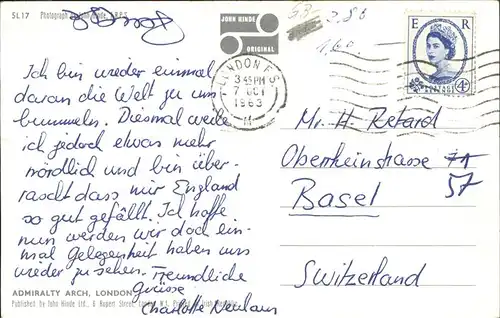 SL17 Photograph: John Hinde, F.R.P.S.
JOHN HINDE
ORIGINAL
2.86
1,60
E R
POSTAGE
REVENUE
4D
LONDON F.S.
3 45 PM
7 OCT
1963
M
Ich bin wieder einmal
daran die Welt zu um-
bummeln. Diesmal weile
ich jedoch etwas mehr
nördlich und bin über-
rascht dass mir England
so gut gefällt. Ich hoffe
nun werden wir doch ein-
mal Gelegenheit haben uns
wieder zu sehen. Freundliche
Grüsse
Charlotte
Mr. H. Retard
Oberrheinstrasse 71
57
Basel
Switzerland
ADMIRALTY ARCH, LONDON
Published by John Hinde Ltd., 6 Rupert Street, London, W.1.